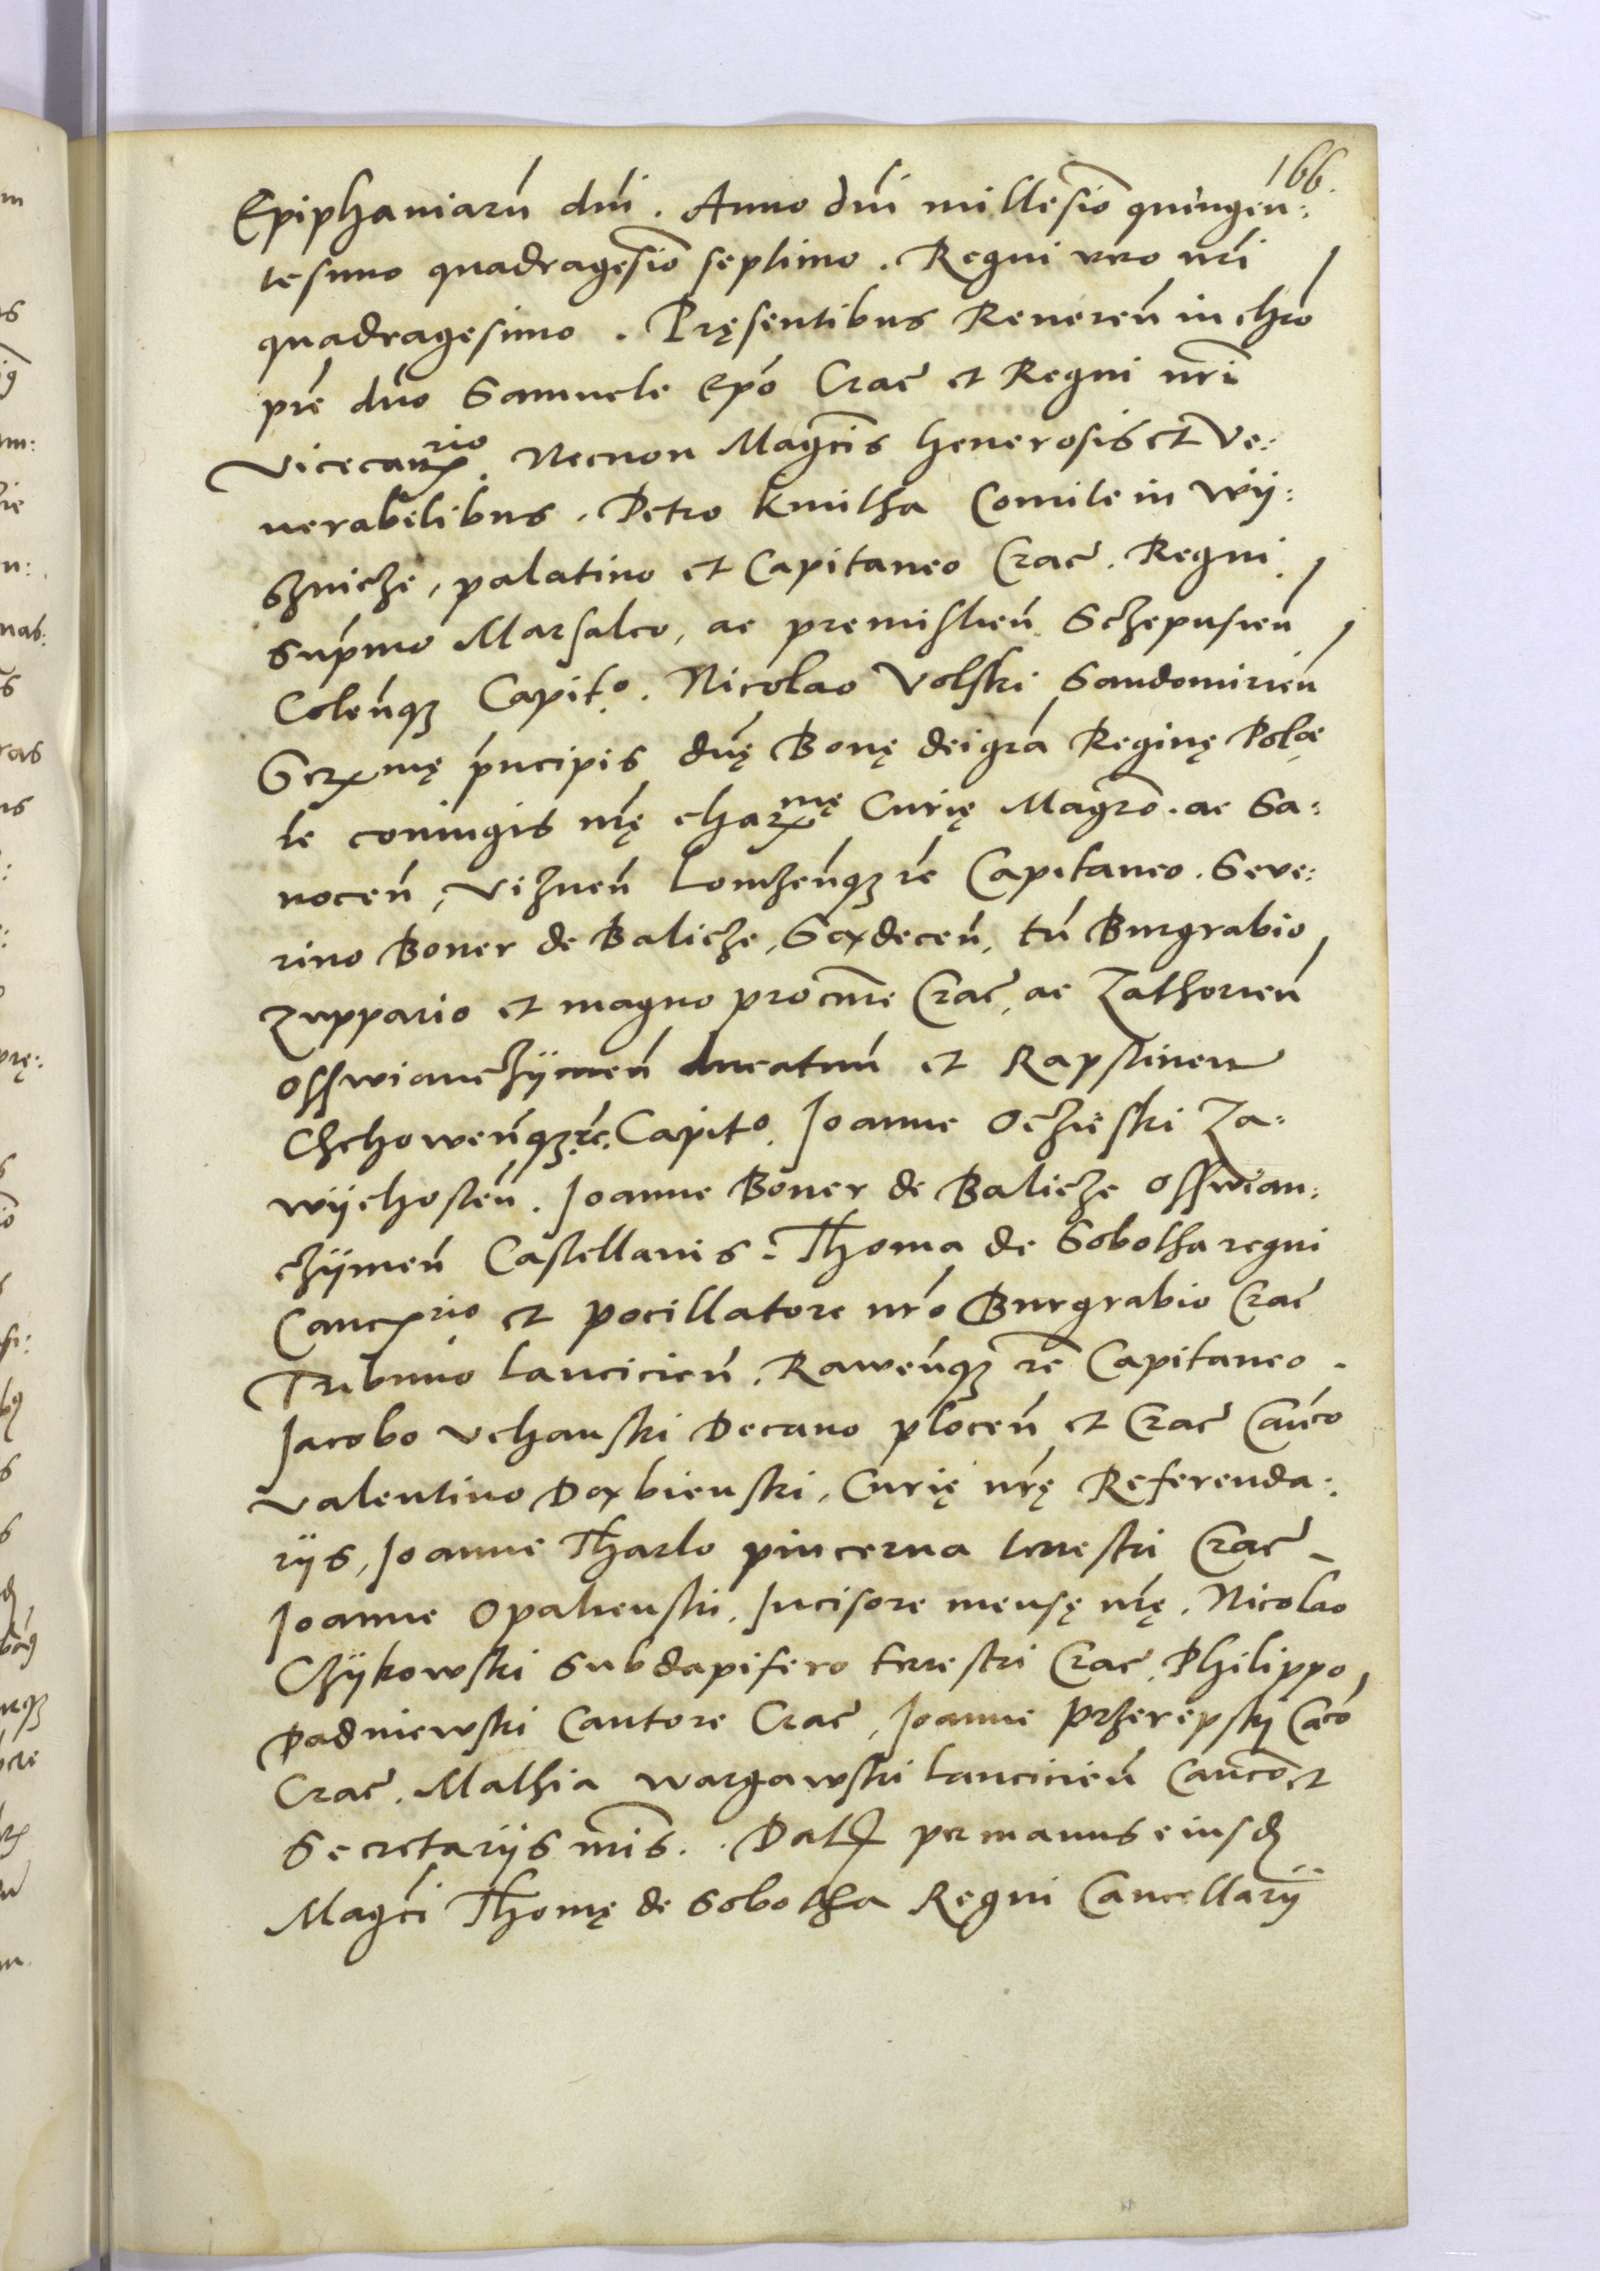 166.
Epiphaniarū dnī. Anno dnī millesīo quingen:
tesimo quadragesīo septimo. Regni vero nrī
quadragesimo. Pręsentibus Reueren̄ in chrō
prē dn̄o Samuele Ep̄o Crac̄ et Regni nrī
Vicecanrio. Necnon Magcīs Generosis et Ve:
nerabilibus. Petro Kmitha Comite in Wÿ:
szniche, palatino et Capitaneo Crac̄. Regni
Supmo Marsalco, ac premislien̄ Sczepusien̄
Colen̄qꝫ Capito. Nicolao Volski Sandomirien̄
Sermę pncipis dn̄ę Bonę dei gra Reginę Polæ
te coniugis nrę charmę Curię Magrō. ac Sa:
nocen̄, Viznen̄ Lomzen̄qꝫ rē Capitaneo. Seve:
rino Boner de Balicze, Sexdecen̄, tū Burgrabio
Zuppario et magno procuratore Crac̄, ac Zathorien̄
Osswianczÿmen̄ ducatuū et Rapstinen
Chchowen̄qꝫ rē. Capito. Joanne Oczieski Za:
wÿchosten̄. Joanne Boner de Balicze Osswian:
czÿmen̄ Castellanis. Thoma de Sobotha regni
Cancrio et pocillatore nrō Burgrabio Crac̄
Tribuno Lancicien̄, Rawen̄qꝫ rē Capitaneo.
Jacobo Vchanski Decano plocen̄ et Crac̄ Canco
Valentino Dexbienski, Curię nrę Referenda:
rÿs, Joanne Tharlo pincerna terrestri Crac̄
Joanne Opalienski, Incisore mensę nrę. Nicolao
Czÿkowski Subdapifero terrestri Crac̄ Philippo
Padniewski Cantore Crac̄, Joanne Przerepskj Caco
Crac̄. Mathia Wargawski Lancicien̄ Canco et
Secretarÿs nrīs. Dat per manus eiusd
Magci Thomę de Sobotha Regni Cancellarÿ